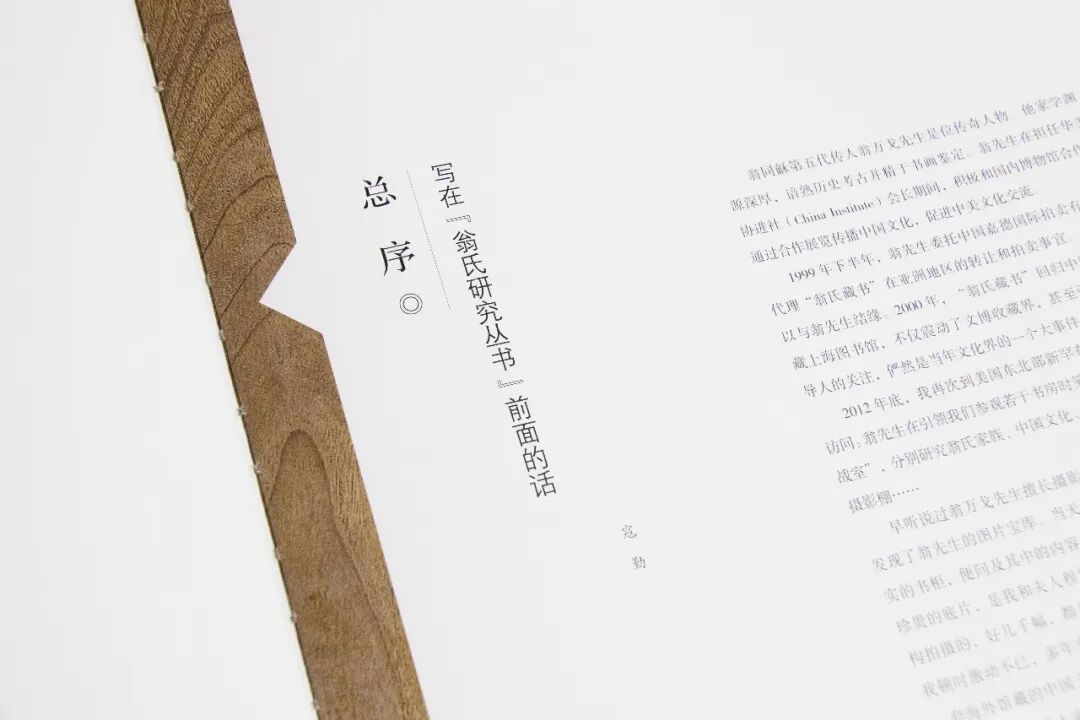 总序◎
写在『翁氏研究丛书』前面的话
寇勤
翁同龢第五代传人翁万戈先生是位传奇人物。他家学渊
源深厚，谙熟历史考古并精于书画鉴定。翁先生在担任华美
协进社（China Institute）会长期间，积极和国内博物馆合作
通过合作展览传播中国文化，促进中美文化交流。
1999年下半年，翁先生委托中国嘉德国际拍卖有
代理“翁氏藏书”在亚洲地区的转让和拍卖事宜。
以与翁先生结缘。2000年，“翁氏藏书”回归中
藏上海图书馆，不仅震动了文博收藏界，甚至
导人的关注，俨然是当年文化界的一个大事件
2012年底，我再次到美国东北部新罕布
访问。翁先生在引领我们参观若干书房时
战室”，分别研究翁氏家族、中国文化、
摄影棚……
早听说过翁万戈先生擅长摄影
发现了翁先生的图片宝库。当天
实的书柜，便问及其中的内容
珍贵的底片，是我和夫人程
构拍摄的，好几千幅，都
我顿时激动不已，多年
海外馆藏的中国